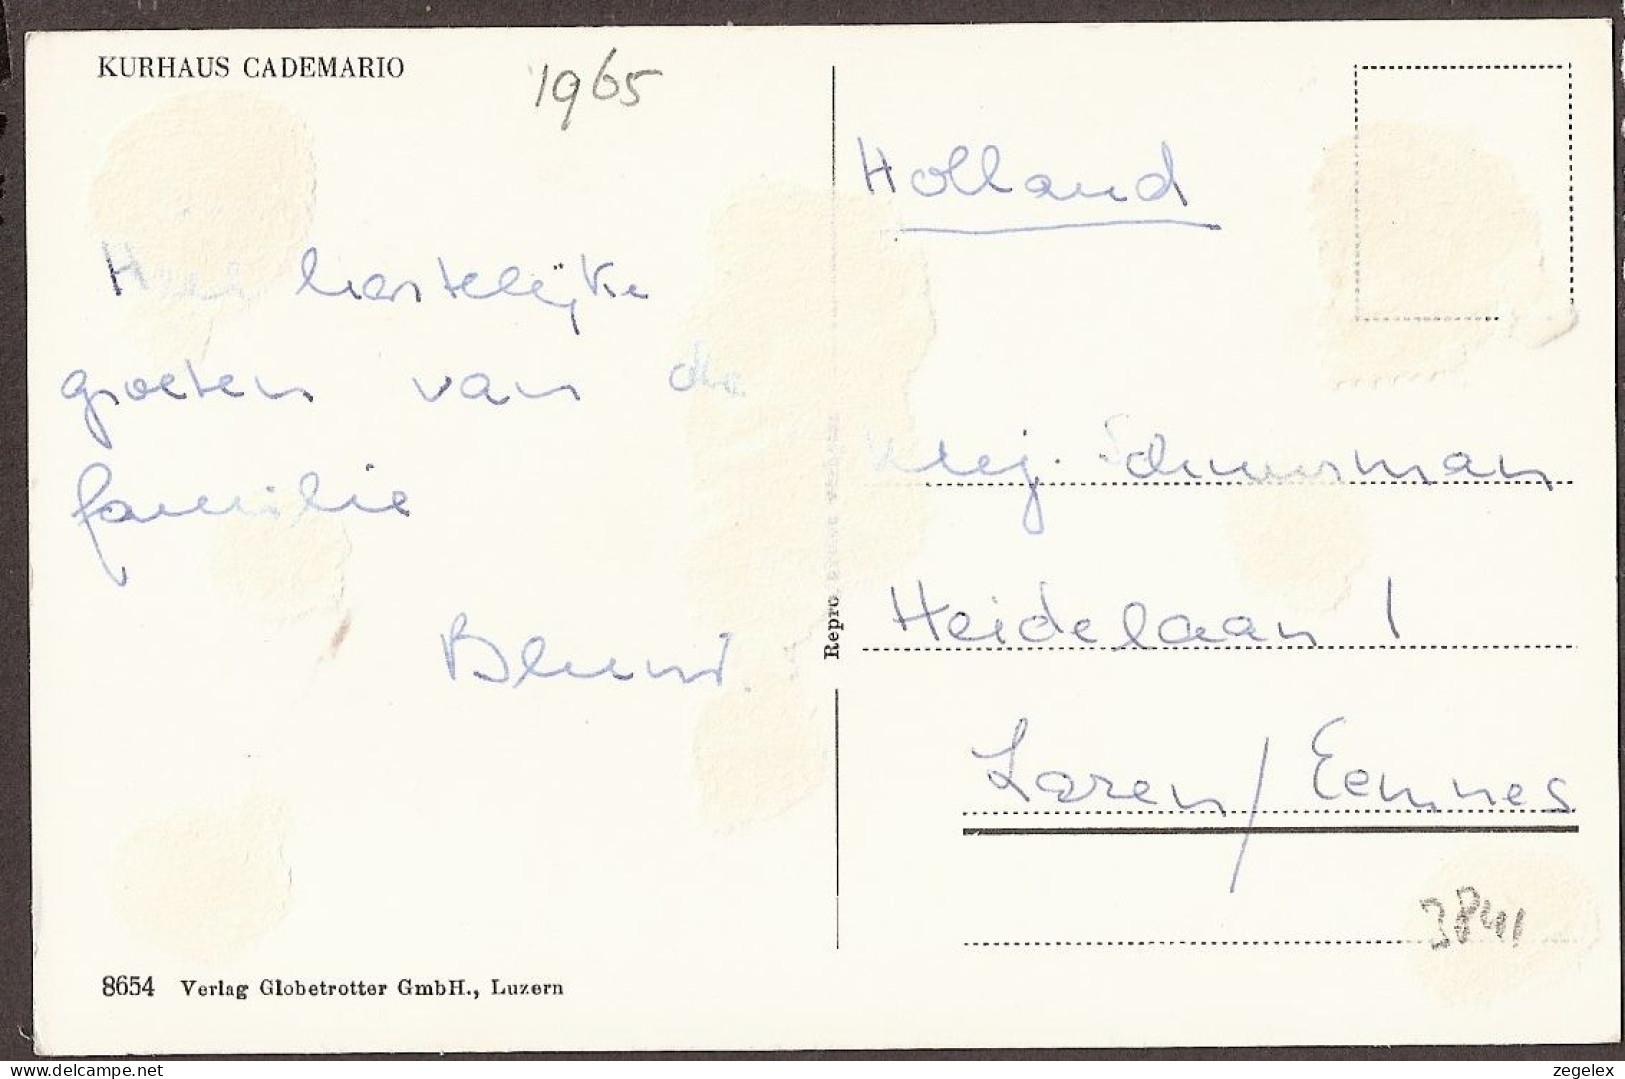 KURHAUS CADEMARIO
1965
Holland
hartelijke
groeten van de
familie
Schuurman
Heidelaan 1
Laren / Eemnes
Repro
3841
8654 Verlag Globetrotter GmbH., Luzern
www.delcampe.net
zegelex